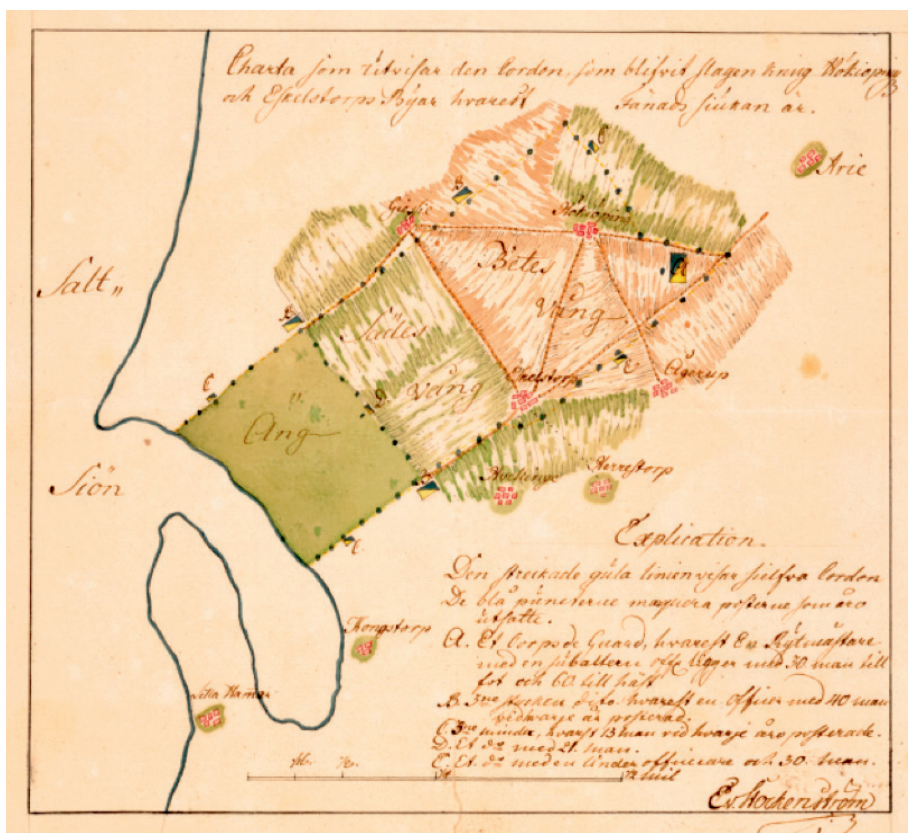 Charta som utvisar den Cordon, som blifvit slagen kring Hököpinge
och Eskelstorps Byar hvarest Fänads siukan är.
Arie
C
B.
Giessie
Hököpinge
Salt„
Betes
A
Vång
B.
Sädes
E
Eskelstorp
Ågerup
C.
Vång
D.
Äng
B
Siön
Herrestorp
C.
Explication.
Den streckade gula linien visar sielfva Cordon
De blå puncterne marquera posterne som äro
utsatte.
Kongstorp
A. Et Corps de Guard, hvarest En Rytmästare
med en subaltern offic ligger med 30 man till
fot och 60 till häst
B. 3ne stycken dito hvarest en officer med 40 man
vid hvarje är posterad.
C. 3ne mindre, hvarest 13 man vid hvarje äro posterade.
D. Et do med 21. man.
E. Et do med en Under officerare och 30. man.
1/4 mil